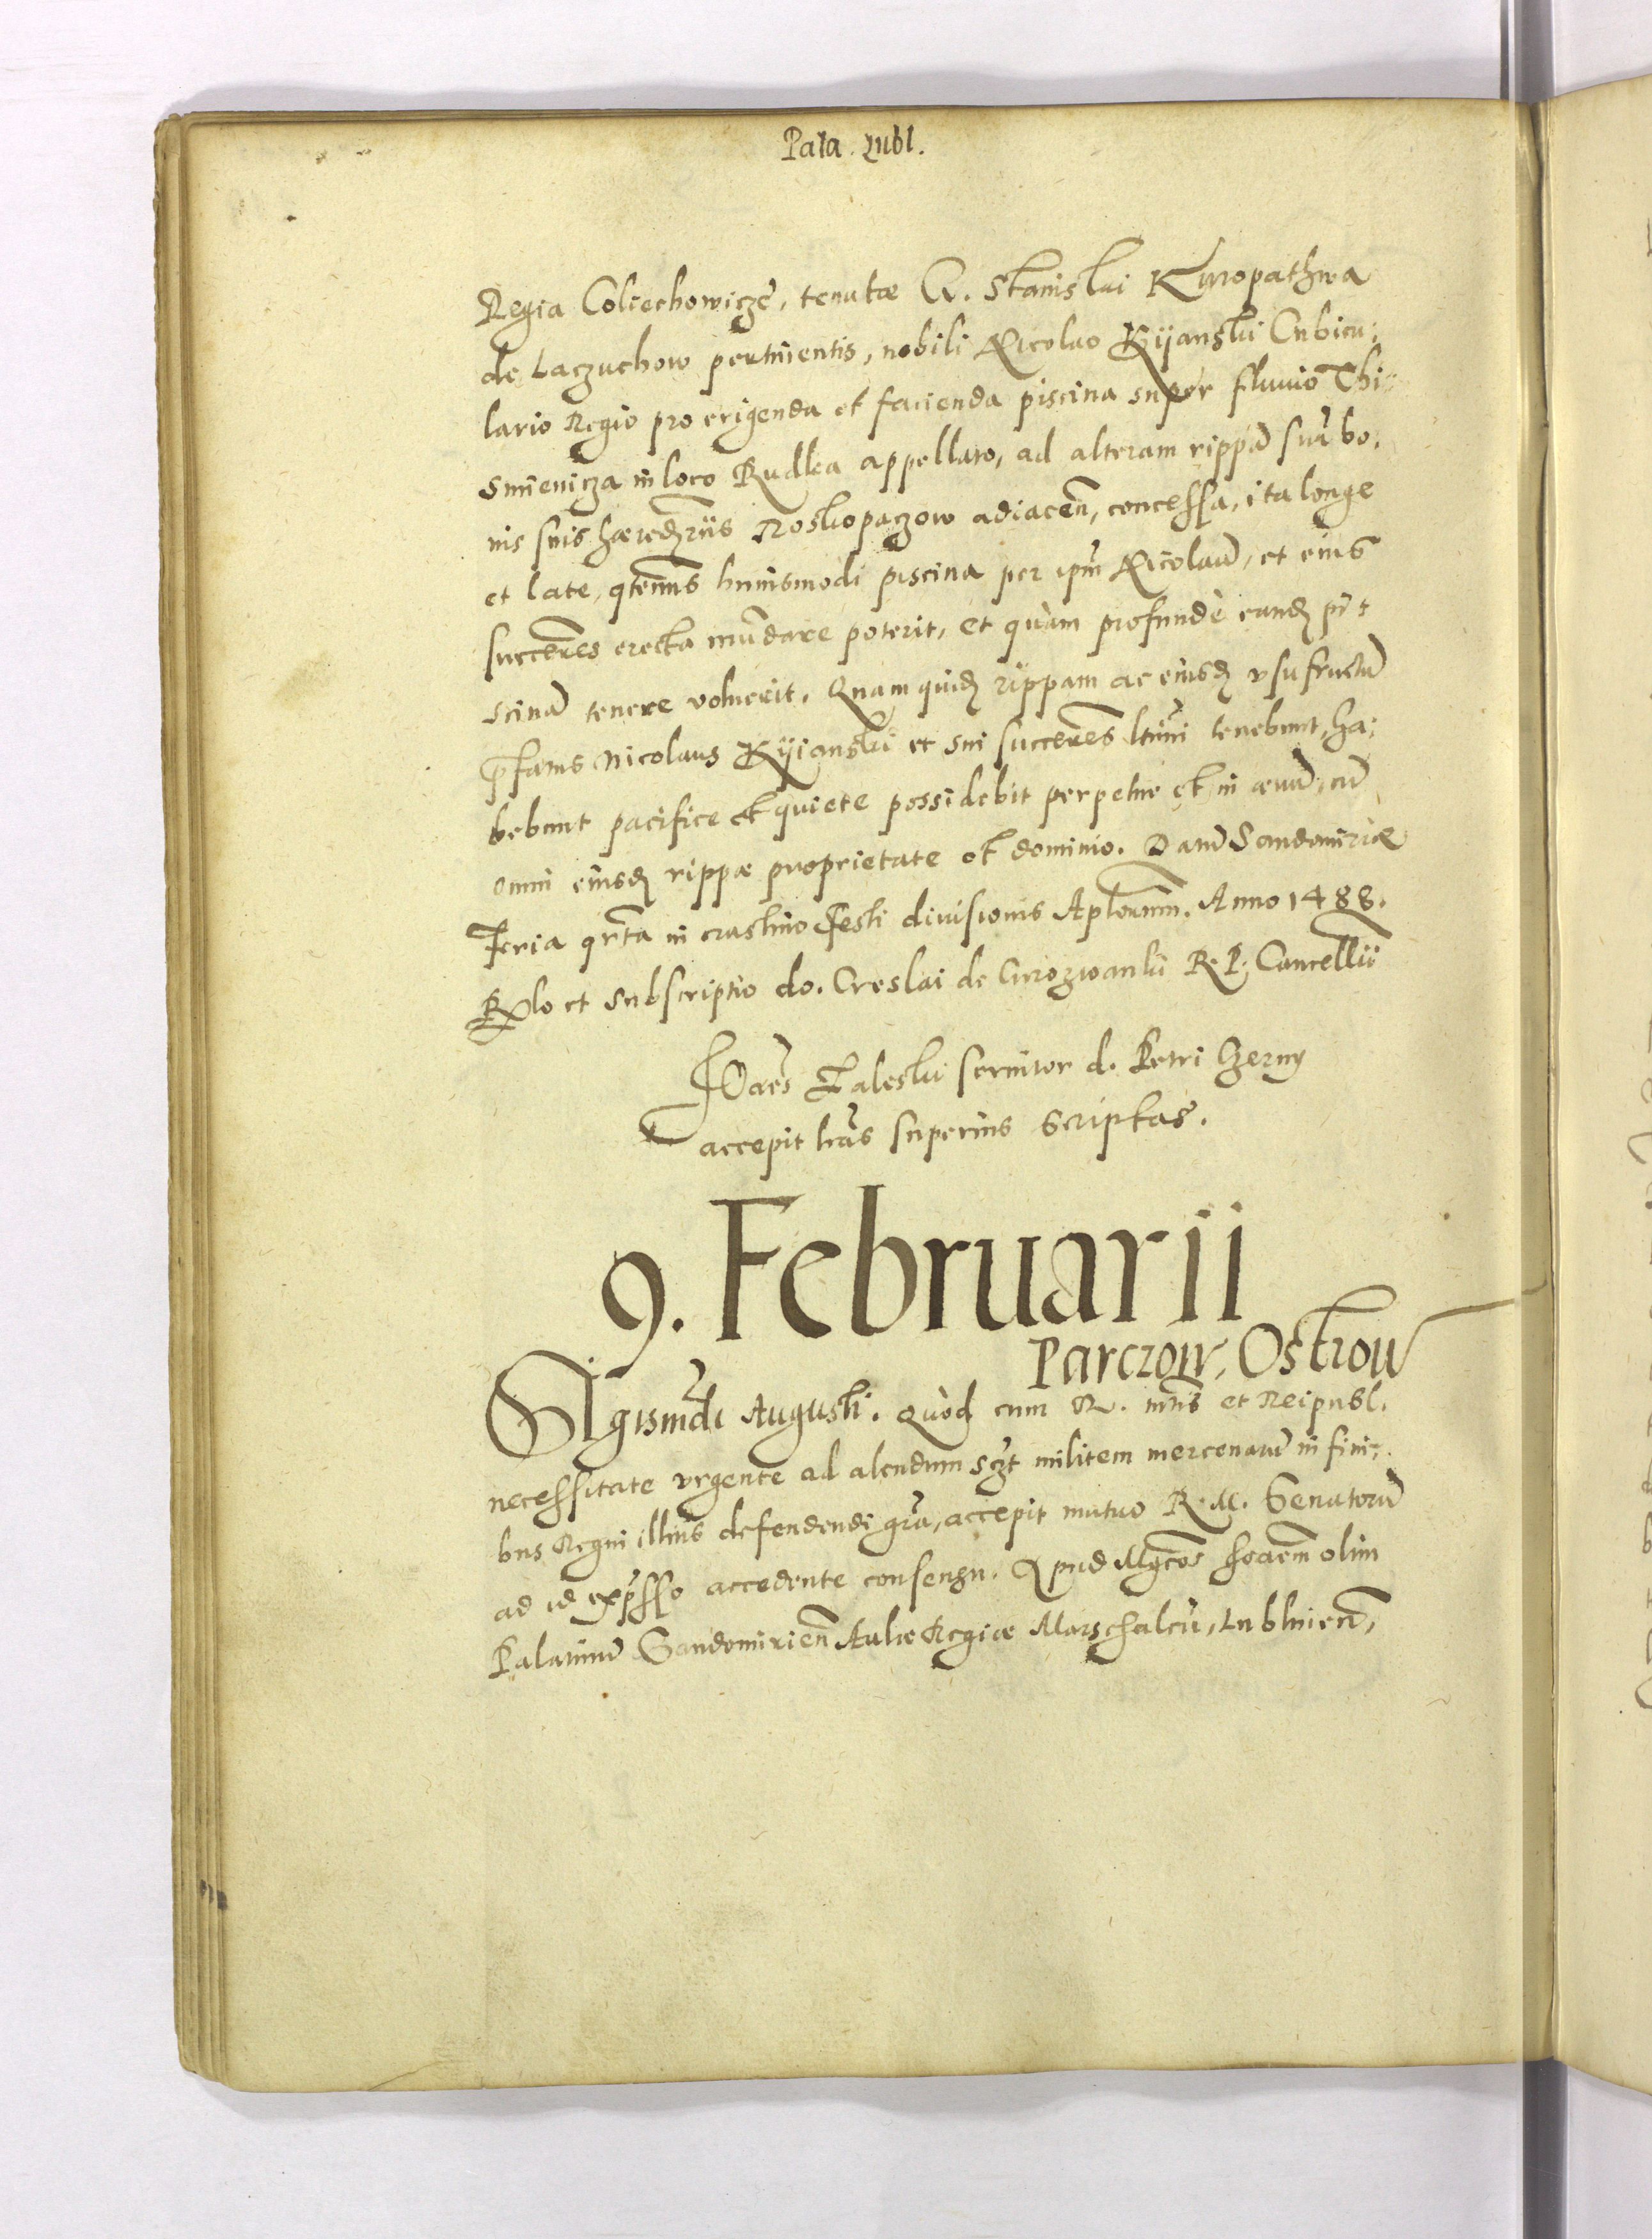 Pala. Lubl.
Regia Coliechowicze, tenutæ G. Stanislai Kuropathwa
de Laczuchow pertinentis, nobili Nicolao Kÿanski Cubicu:
lario Regio pro erigenda et facienda piscina super fluuio Thi:
smienicza in loco Rudka appellato, ad alteram rippā suā bo:
nis suis hæredrÿs Roskopaczow adiaceñ, concessa, ita longe
et late, qtenus huiusmodi piscina per ipm̃ Nicolaũ, et eius
succẽres erecta inũdare poterit, et quàm profundè eandȝ pi:
scinã tenere voluerit. Quam quidȝ rippam ac eiusdȝ vsufructũ
p̃fatus Nicolaus Kÿianski et sui succẽres ltĩmi tenebunt, ha:
bebunt pacifice et quiete possidebit perpetue et in æuũ, cũ
omni eiusdȝ rippæ proprietate et dominio. Datũ Sandomiriæ
Feria qrta in crastino festi diuisionis Aplorum. Anno 1488.
Rlo et subscriptio do. Creslai de Curozwanki R. P. Cancellÿ
Ioães Zaleski seruitor d. Petri Czerny
accepit hãs superius scriptas.
9. Februarii
Parczow, Ostrow
Sigismũdi Augusti. Quòd cum R. mtis et Reipubl.
necessitate vrgente ad alendum sczt militem mercenariũ in fini:
bus Regni illius defendendi gr̃a, accepit mutuo R. M. Senatorũ
ad id exp̃sso accedente consensu. Apud Mgcos Ioaem olim
Palatinũ Sandomirieñ Aulæ Regiæ Marschalcũ, Lublinieñ,